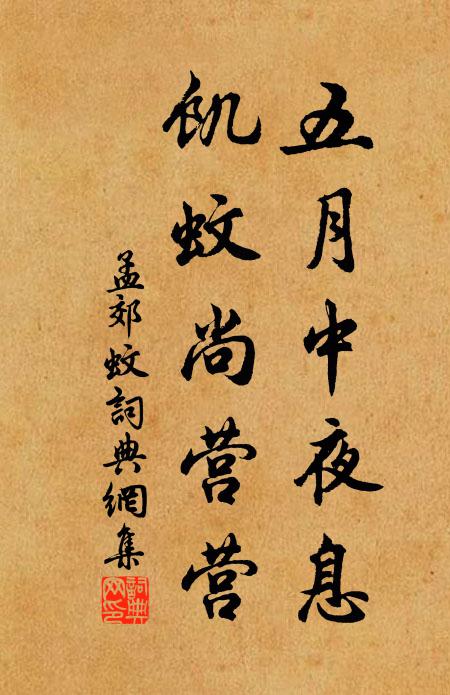 五月中夜息
飢蚊尚营营
孟郊蚊詞典網集
詞典网印